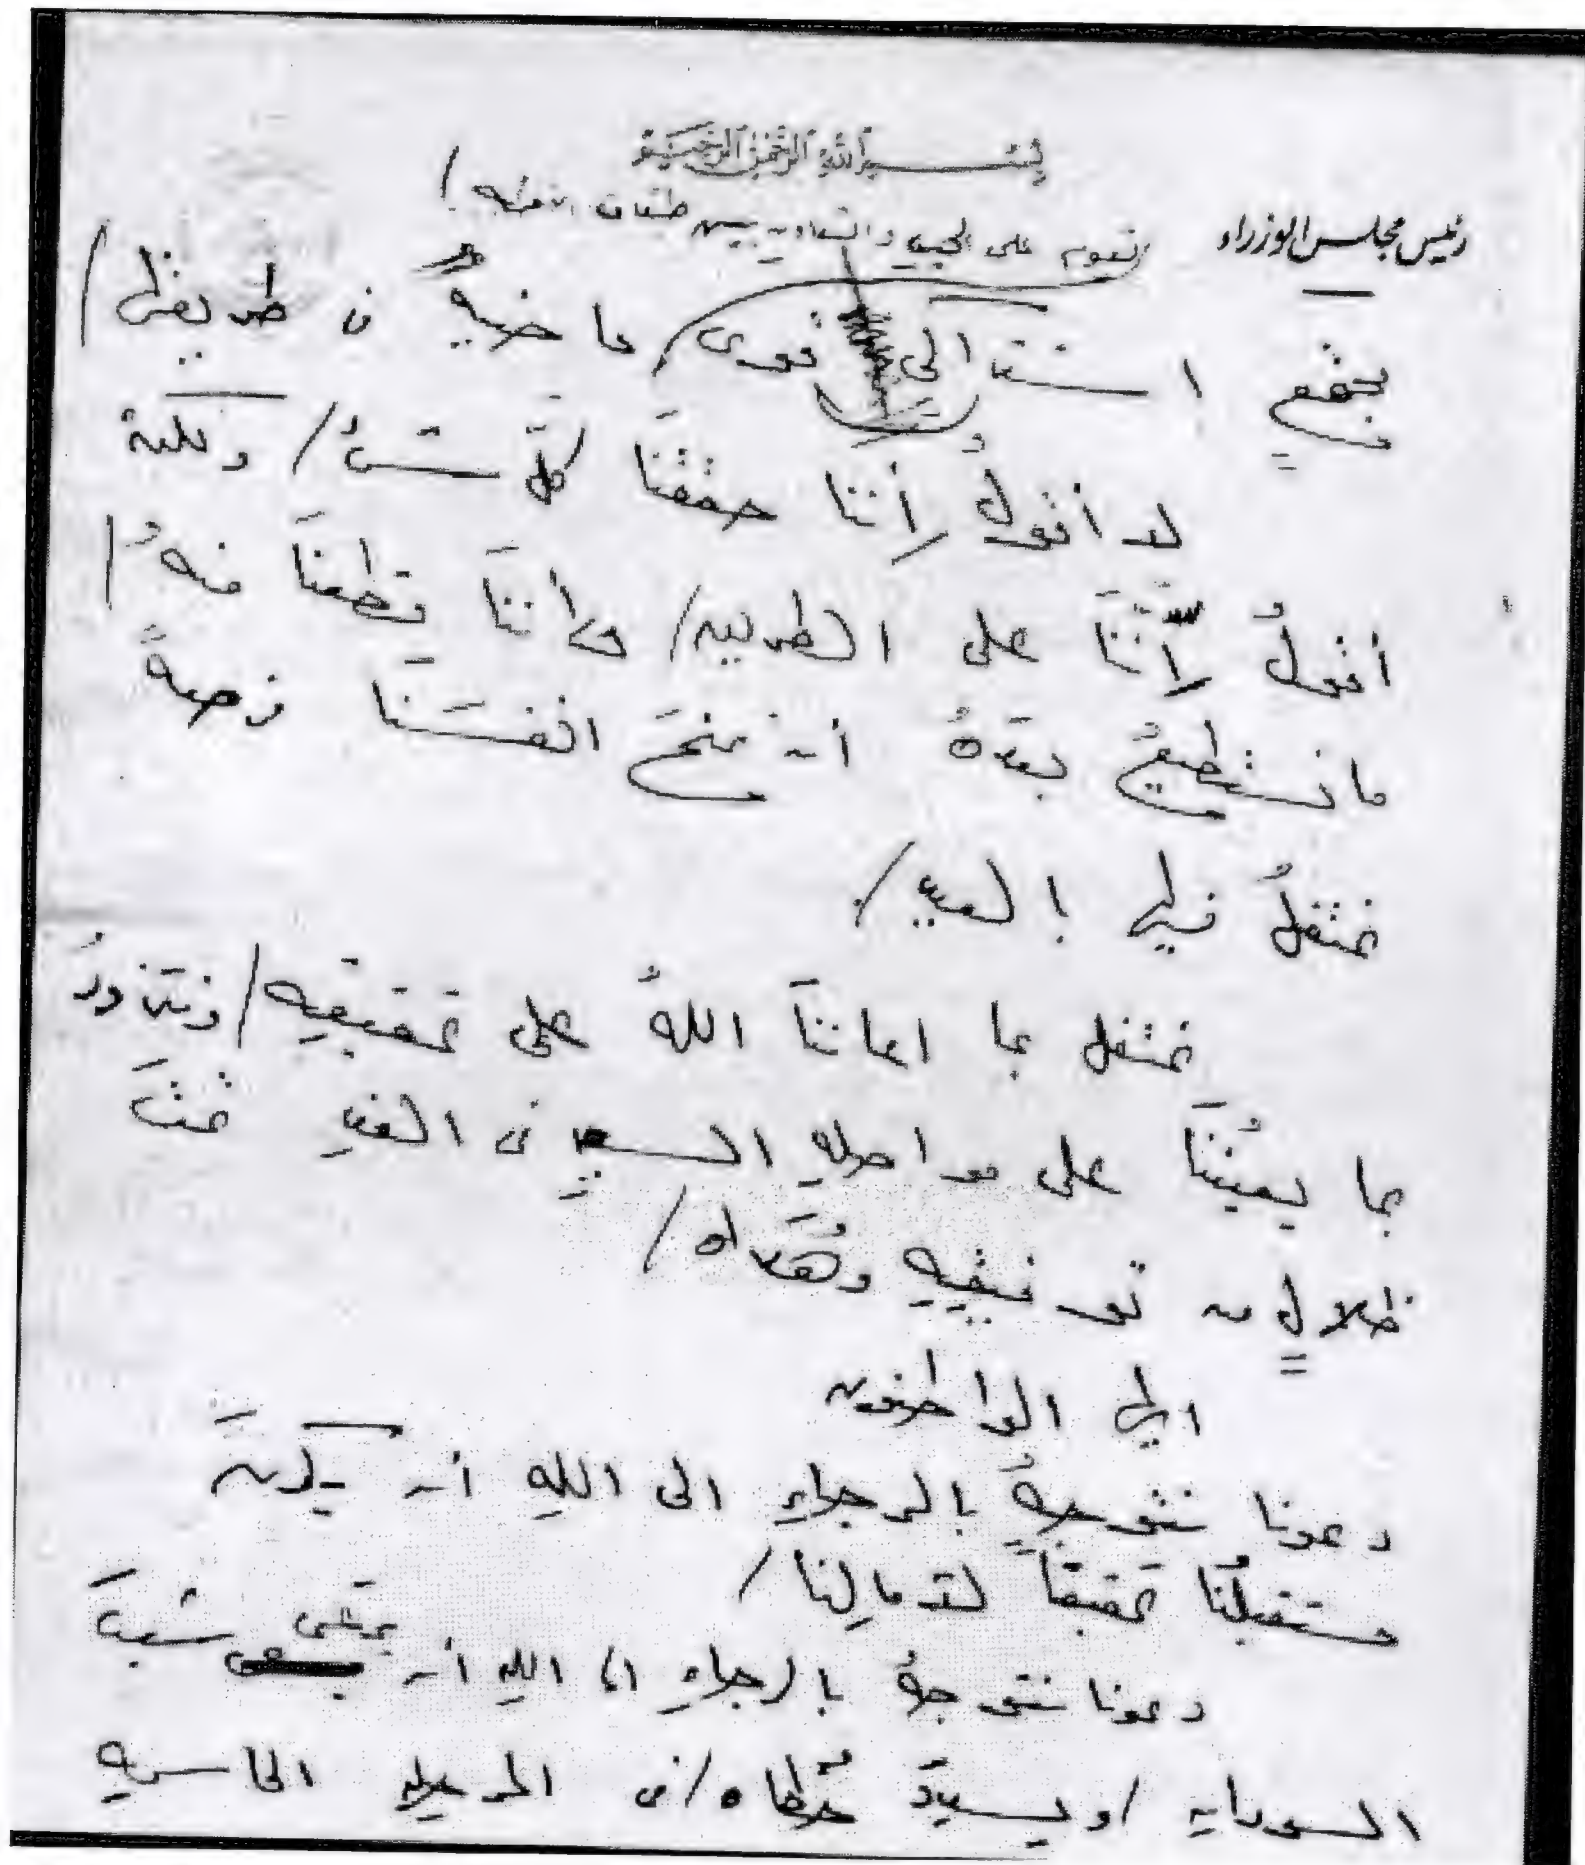 بِسْمِ اللهِ الرَّحْمٰنِ الرَّحِيْمِ
رئيس مجلس الوزراء
تقوم على الحب والتعاون بين طبقات /
بمجتمعٍ اشتراكىٍ قوى / ماضيةٌ فى طريقها /
لا أقولُ إننا حققنَا كلَّ شىءٍ / ولكنه
أقولُ إنَّنَا على الطريق / وأننَا قطعنَا منهُ /
ما نستطيعُ بعدهُ أن نمنحَ انفسَنَا فرصةً
نحتفلُ فيها بالعيد /
نحتفل بما اعاننَا اللهُ على تحقيقِه / ونتزودُ
بما يعينُنَا على مواصلةِ السيرِ فى الغدِ تحتَ
ظلالٍ من توفيقِهِ وهُدَاه /
ايها المواطنون
دعونا نتوجهُ بالرجاءِ الى اللهِ أن يكونَ
مستقبلُنَا تحقيقاً لآمالِنا /
دعونا نتوجهُ بالرجاءِ الى اللهِ أن يرعَى شعبَ
السودان / ويسددَ خُطاه / فى المرحلةِ الحاسمه